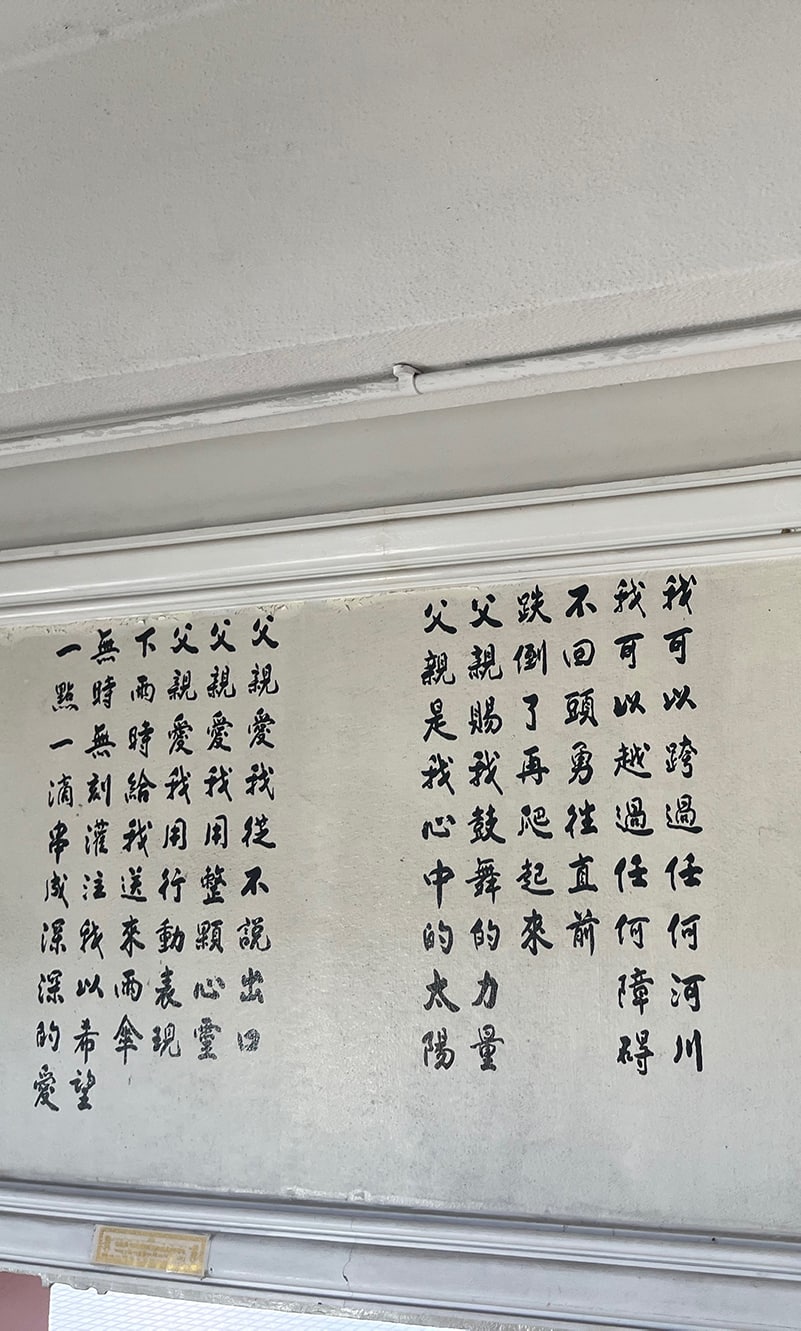 我可以跨過任何河川
我可以越過任何障碍
不回頭勇往直前
跌倒了再爬起來
父親賜我鼓舞的力量
父親是我心中的太陽
父親愛我從不說出口
父親愛我用整顆心靈
父親愛我用行動表現
下雨時給我送來雨傘
無時無刻灌注我以希望
一點一滴串成深深的愛